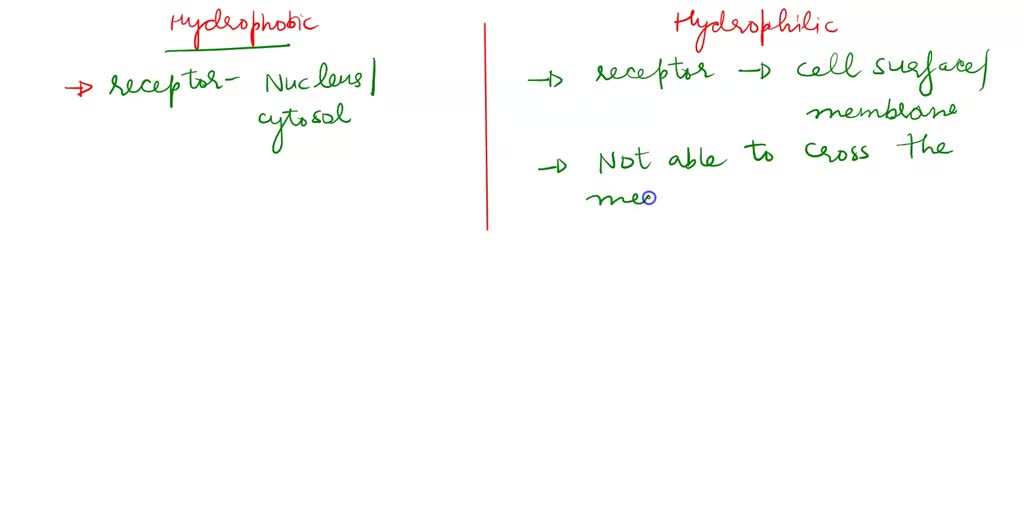 Hydrophobic
→ receptor - Nucleus/
cytosol
Hydrophilic
→ receptor → cell surface/
membrane
→ Not able to cross the
me